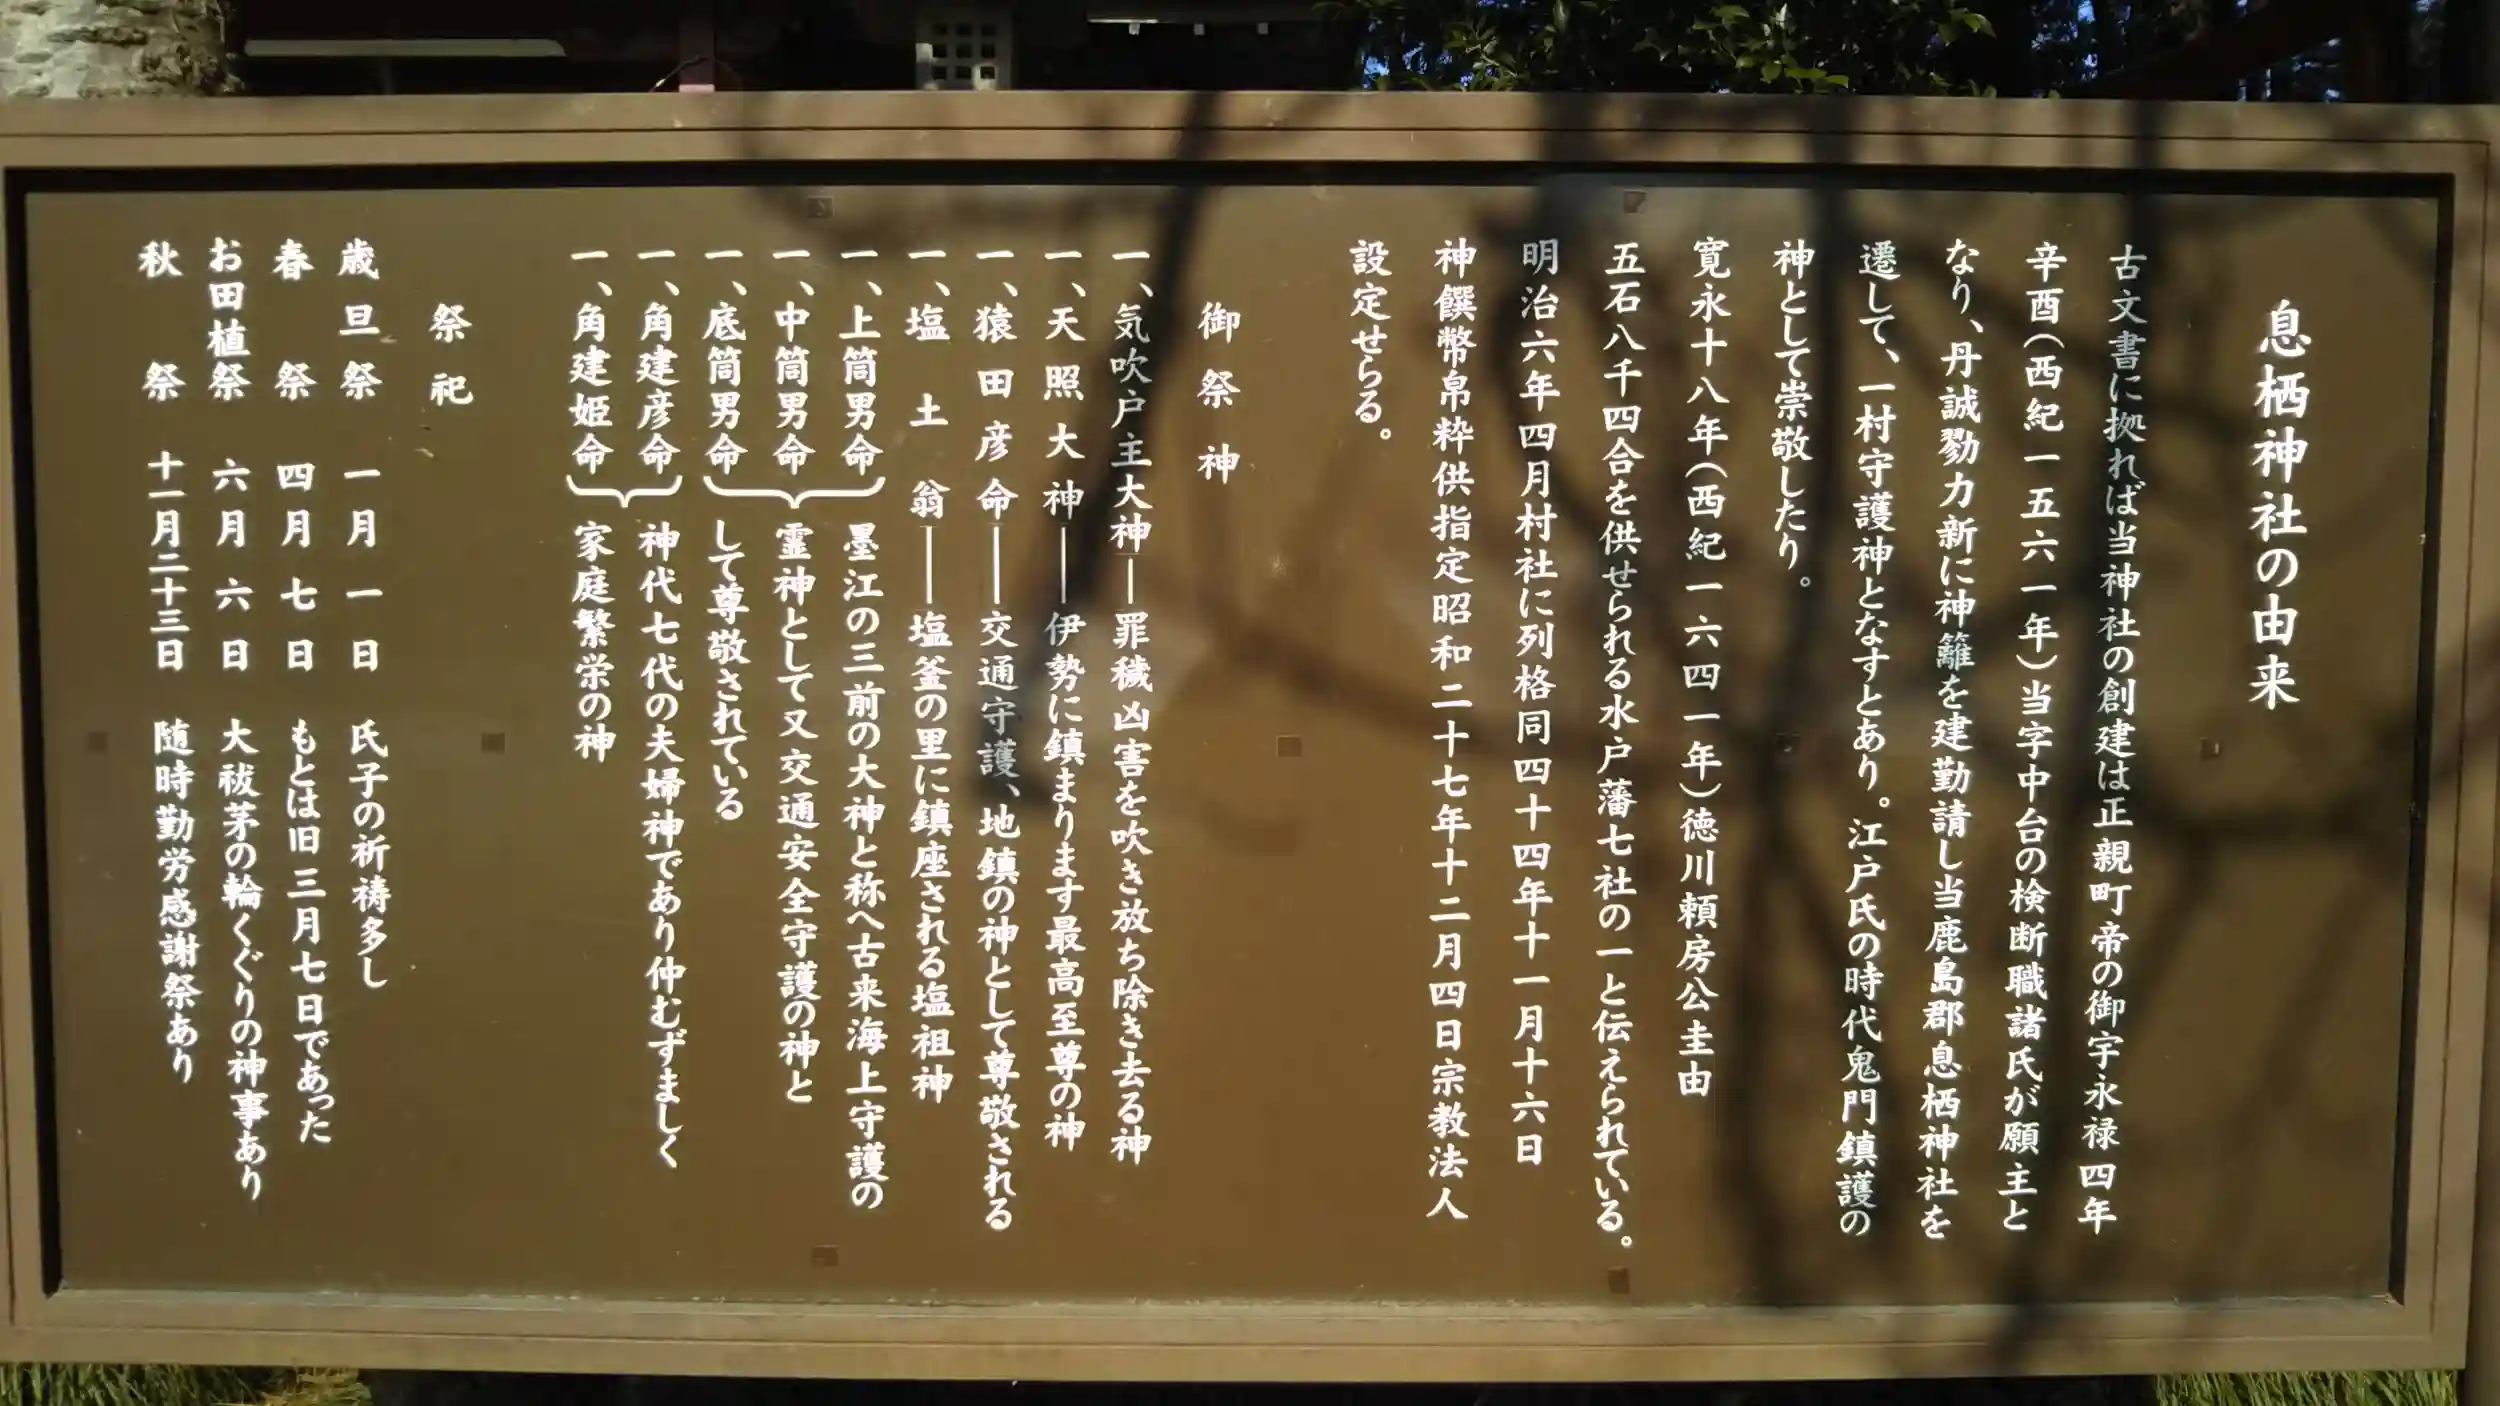 息栖神社の由来
古文書に拠れば当神社の創建は正親町帝の御宇永禄四年
辛酉(西紀一五六一年)当字中台の検断職諸氏が願主と
なり、丹誠勠力新に神籬を建勤請し当鹿島郡息栖神社を
遷して、一村守護神となすとあり。江戸氏の時代鬼門鎮護の
神として崇敬したり。
寛永十八年(西紀一六四一年)徳川頼房公圭由
五石八千四合を供せられる水戸藩七社の一と伝えられている。
明治六年四月村社に列格同四十四年十一月十六日
神饌幣帛粋供指定昭和二十七年十二月四日宗教法人
設定せらる。
御祭神
一、気吹戸主大神―罪穢凶害を吹き放ち除き去る神
一、天照大神―伊勢に鎮まります最高至尊の神
一、猿田彦命―交通守護、地鎮の神として尊敬される
一、塩土翁―塩釜の里に鎮座される塩祖神
一、上筒男命 墨江の三前の大神と称へ古来海上守護の
一、中筒男命 霊神として又交通安全守護の神と
一、底筒男命 して尊敬されている
一、角建彦命 神代七代の夫婦神であり仲むずましく
一、角建姫命 家庭繁栄の神
祭祀
歳旦祭 一月一日 氏子の祈祷多し
春祭 四月七日 もとは旧三月七日であった
お田植祭 六月六日 大祓茅の輪くぐりの神事あり
秋祭 十一月二十三日 随時勤労感謝祭あり